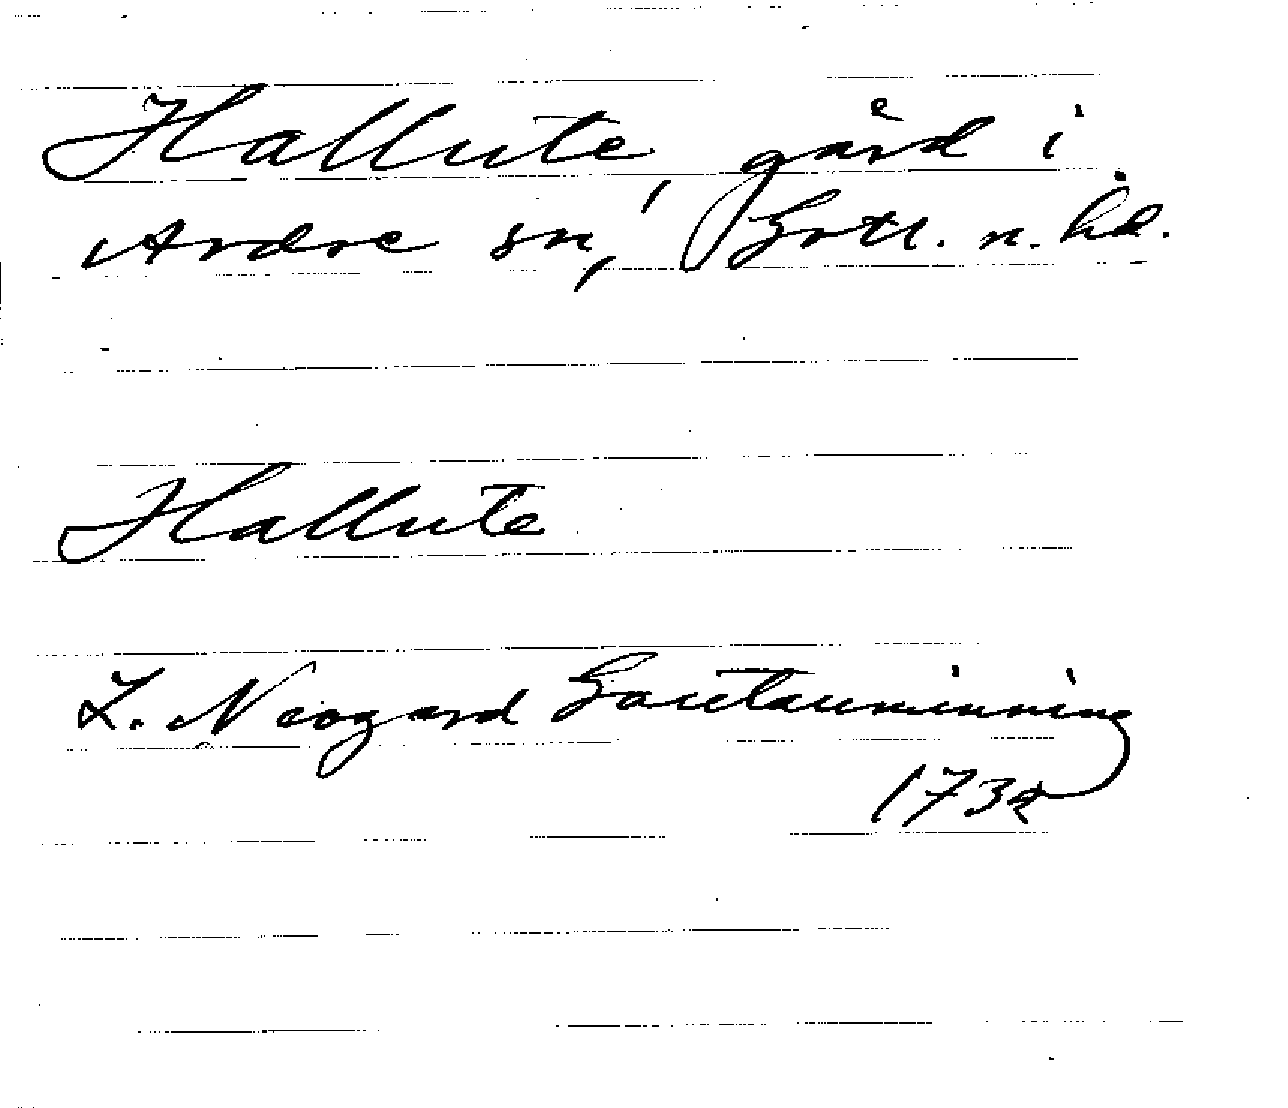 Hallute, gård i
Ardre sn, Gotl. n. hd.
Hallute
L. Neogard Gautauminning
1732